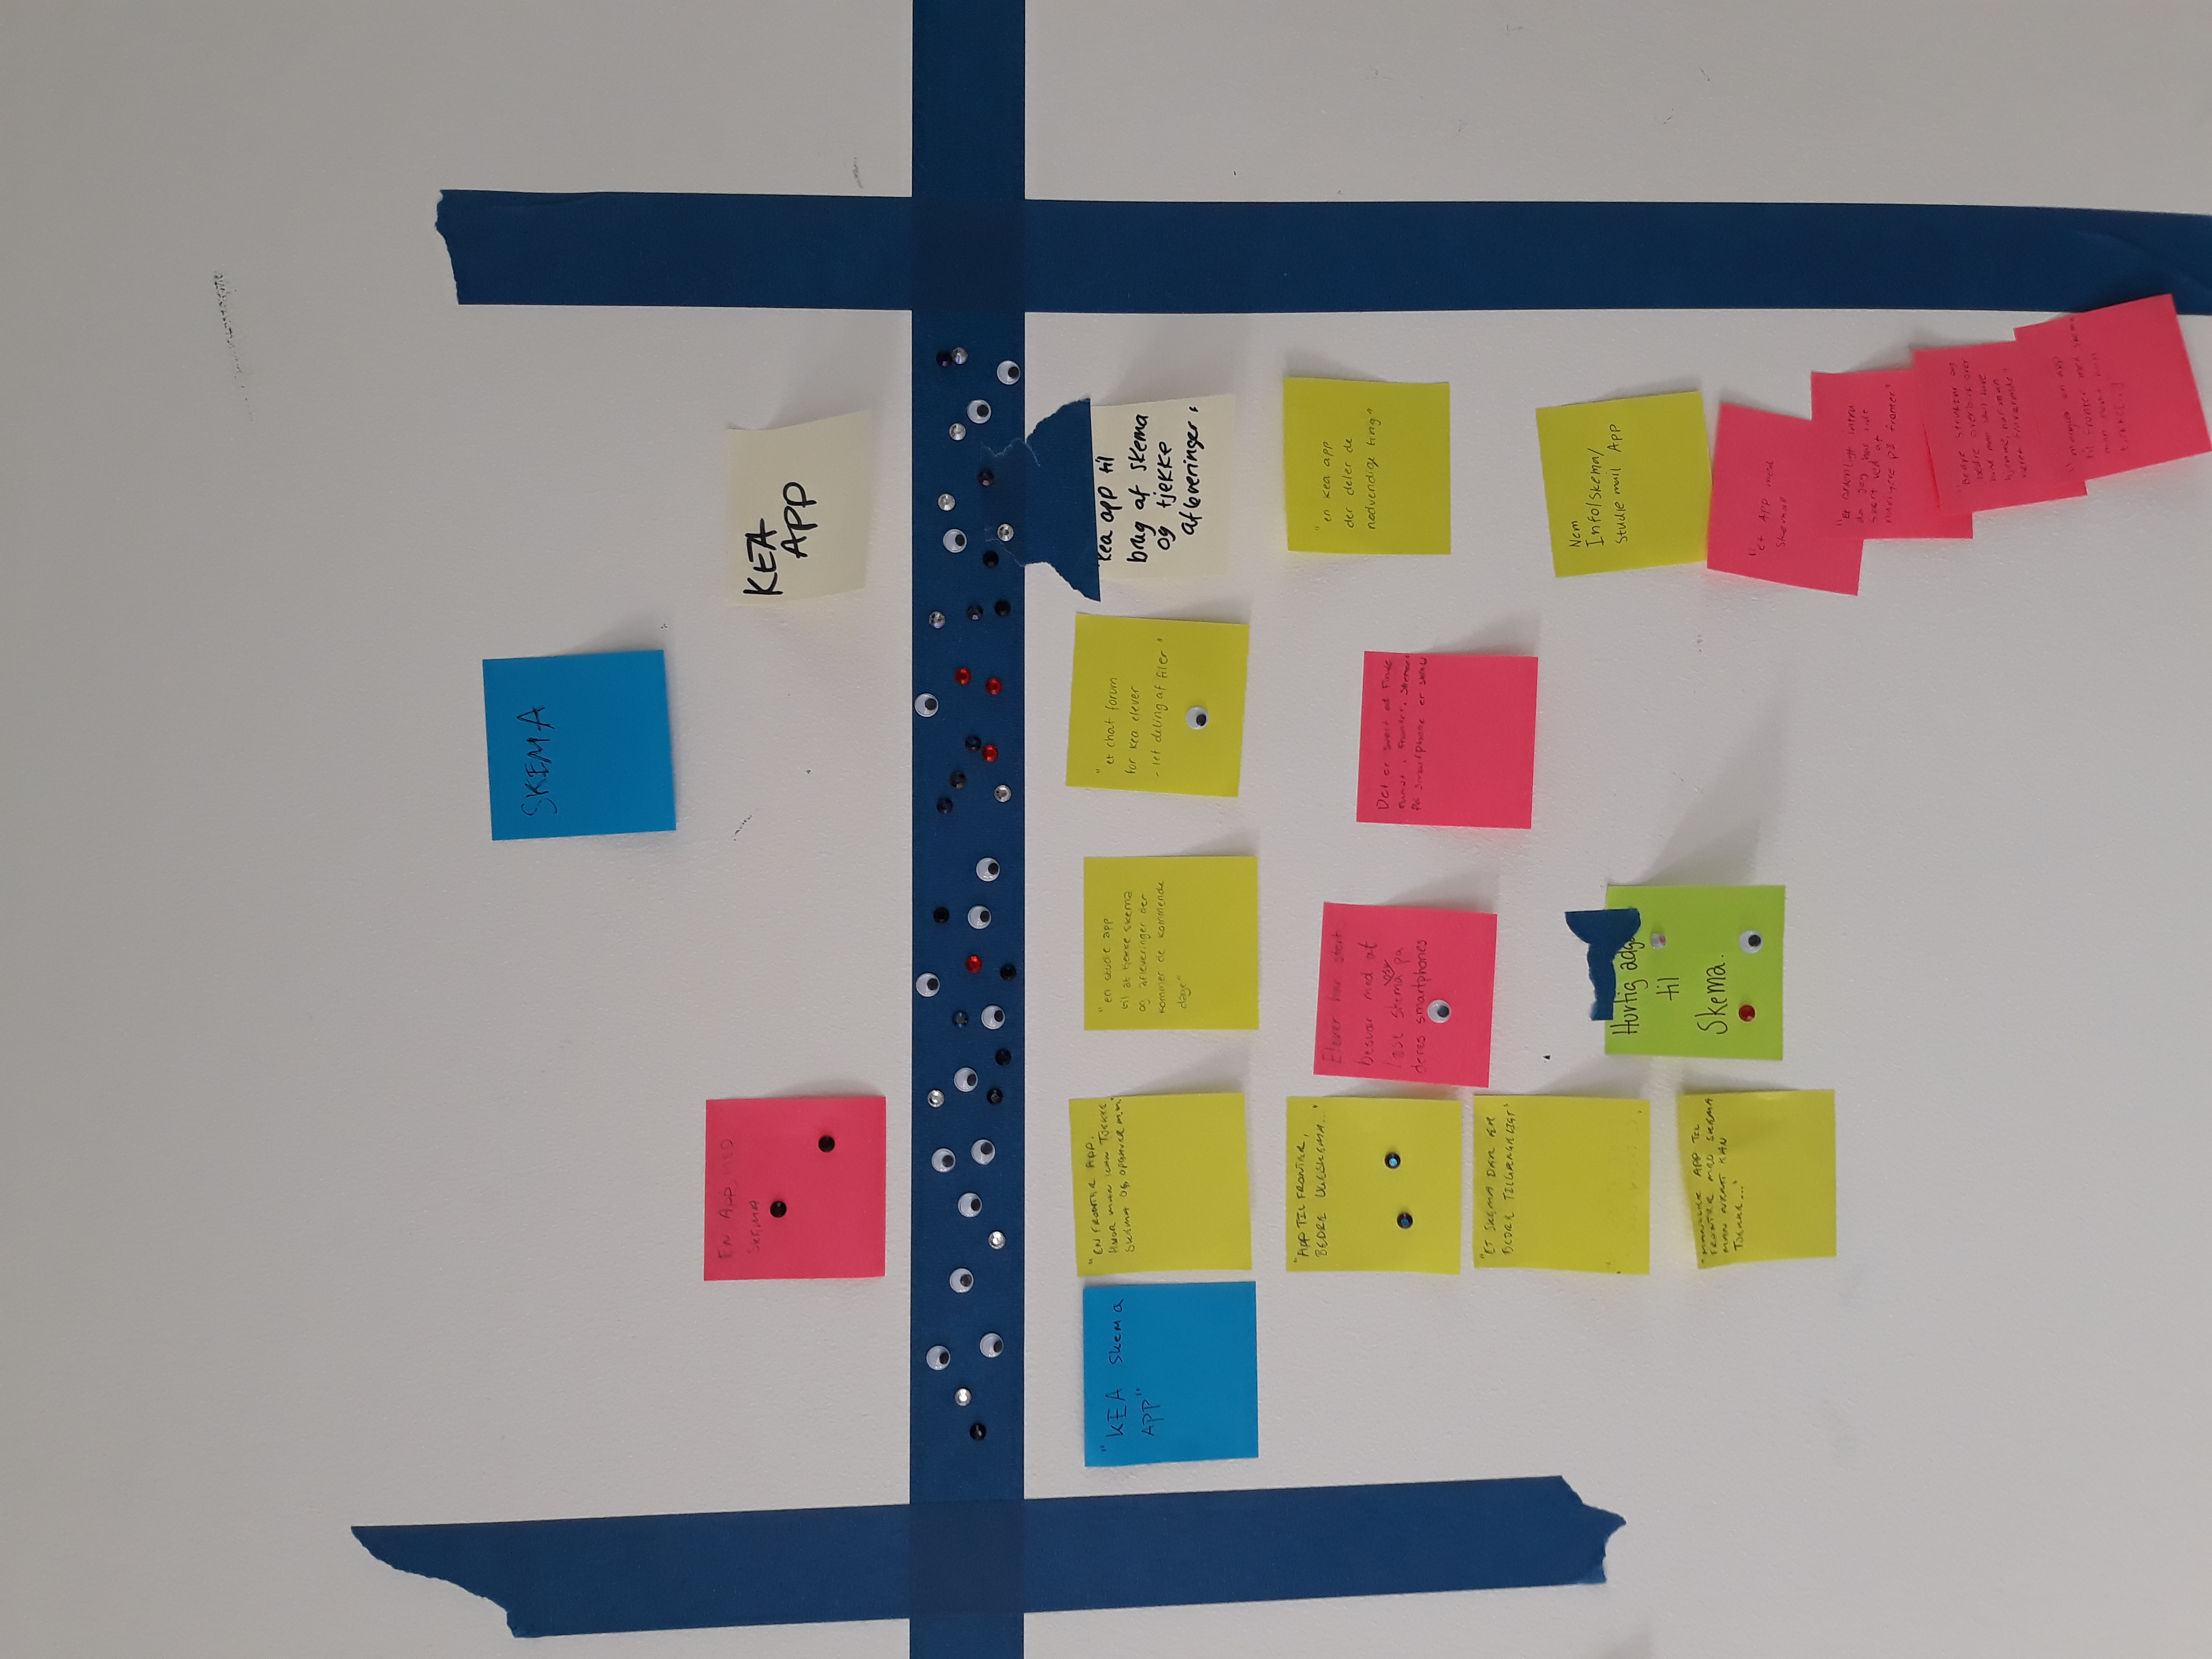 SKEMA
EN APP MED
SKEMA
KEA
APP
"KEA Skema
APP"
"EN FRONTER APP,
HVOR MAN KAN TJEKKE
SKEMA OG OPGAVER M.M."
"en studie app
til at tjekke skema
og afleveringer der
kommer de kommende
dage"
"et chat forum
for kea elever
- let deling af filer"
Kea app til
brug af skema
og tjekke
afleveringer.
"APP TIL FRONTER,
BEDRE UGESKEMA..."
Elever har stort
besvær med at
læse skema på
deres smartphones
Det er svært at finde
rundt i Fronter. Skemaet
på smartphone er
"en kea app
der deler de
nødvendige ting"
"ET SKEMA DER ER
BEDRE TILGÆNGELIGT"
Nem
Info/skema/
studiemail App
Hurtig
til
Skema.
"MANGLER APP TIL
FRONTER MED SKEMA
MAN NEMT KAN
TJEKKE..."
"et App med
skema"
"Et ordenligt intra
da jeg har lidt
svært ved at
navigere på fronter"
"Bedre struktur og
bedre overblik over
hvad man skal lave
hjemme, har man
været fraværende"
"mangler en app
til fronter med skema
man nemt kan
tjekke[...]